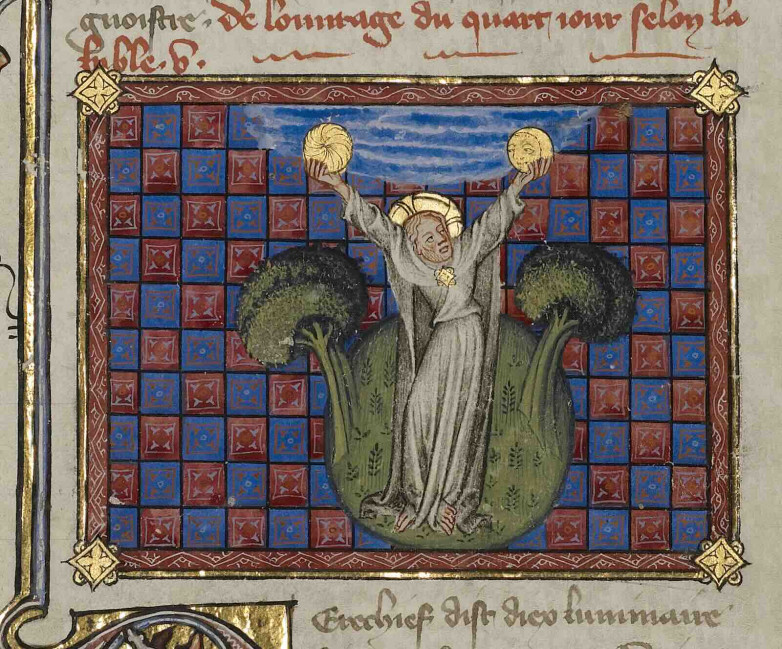 gnoistre. De louurage du quart iour selon la
bible. v.
Derechief dist diex luminaire